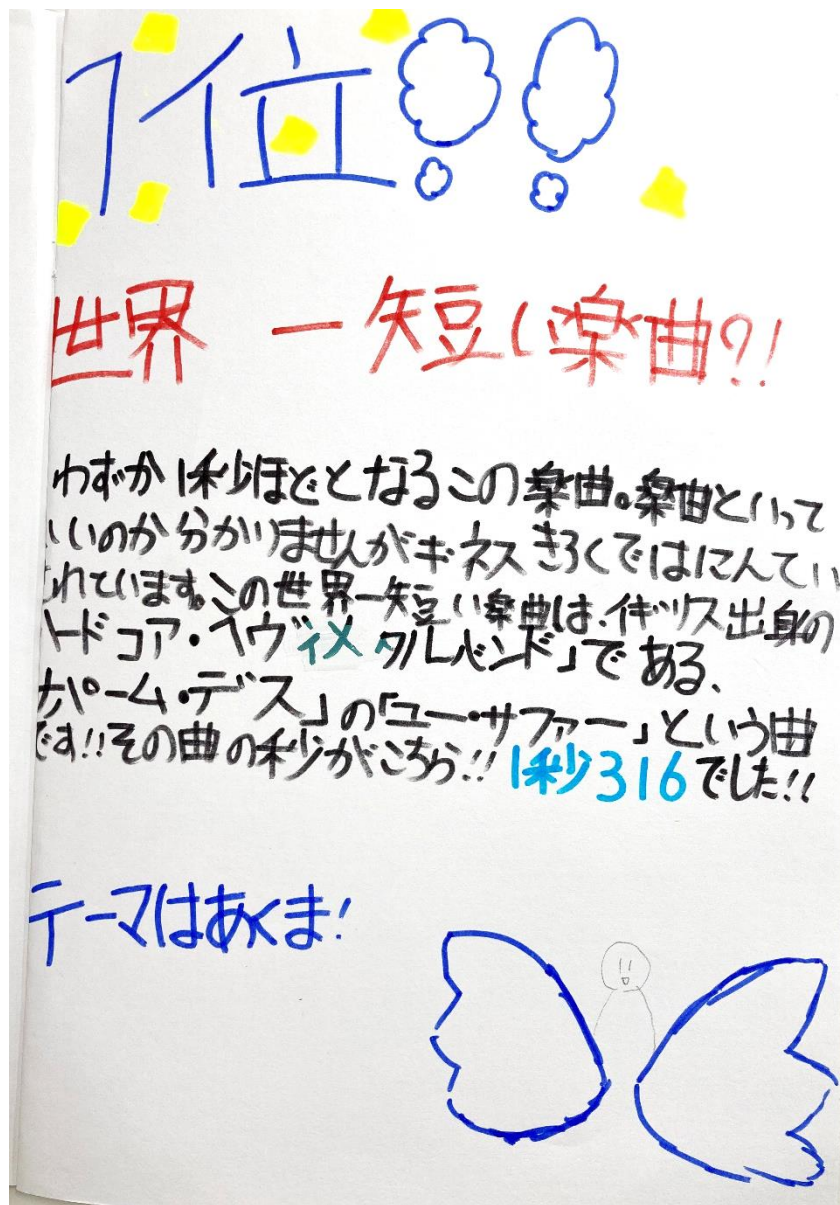 1位!!
世界一短い楽曲?!
わずか1秒ほどとなるこの楽曲。楽曲といって
いいのか分かりませんがギネスきろくではにんてい
されています。この世界一短い楽曲は、イギリス出身の
ハードコア・ヘヴィメタルバンド」である、
ナパーム・デス」の「ユー・サファー」という曲
です!!その曲の秒がこちら!! 1秒316でした!!
テーマはあくま!